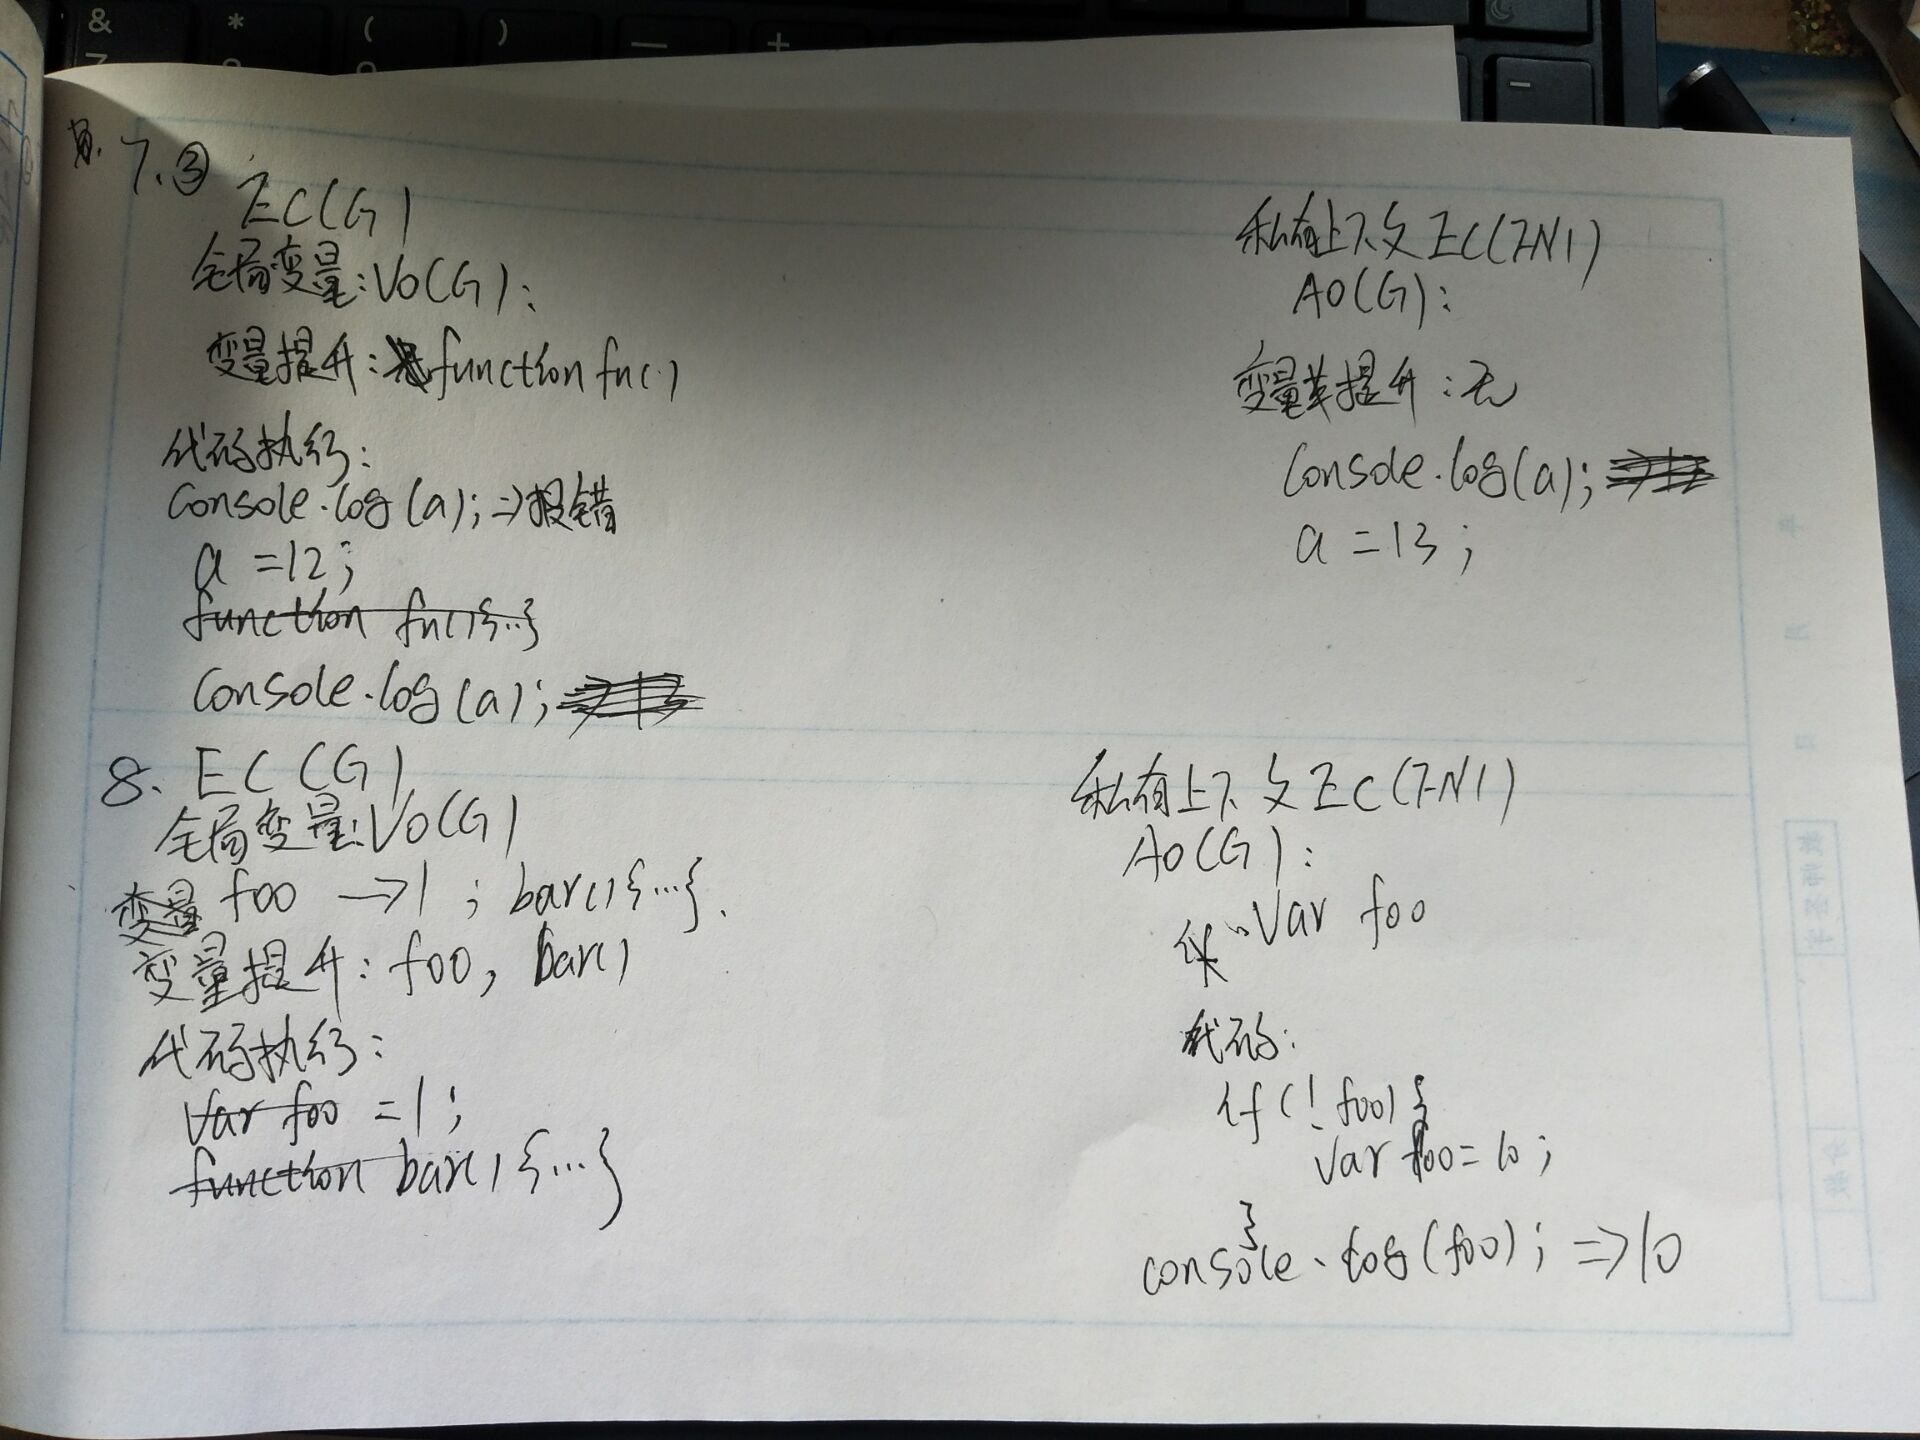 7.③
EC(G)
全局变量:VO(G):
变量提升: function fn()
代码执行:
Console.log(a);=>报错
a =12;
function fn(){...}
Console.log(a);
私有上下文EC(FN1)
AO(G):
变量提升:无
Console.log(a);
a =13;
8. EC(G)
全局变量:VO(G)
变量 foo —>1 ; bar(){...}.
变量提升: foo, bar()
代码执行:
Var foo =1;
function bar(){...}
私有上下文EC(FN1)
AO(G):
Var foo
代码:
if(!foo){
Var foo=10;
}
console.log(foo); =>10
&
*
(
)
—
+